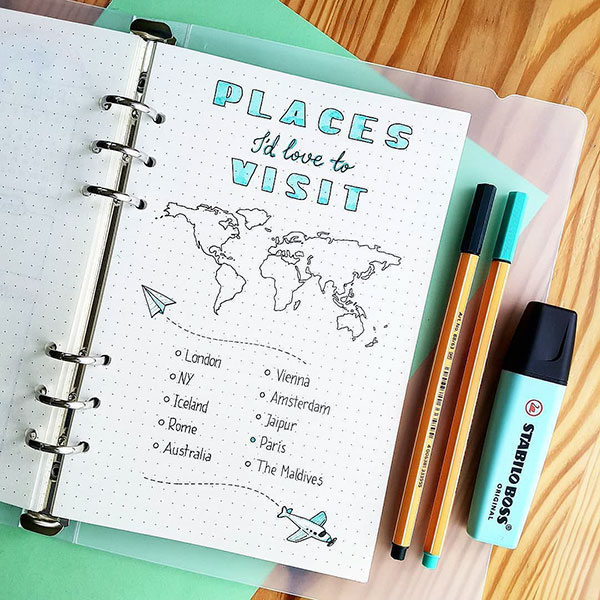 PLACES
I'd love to
VISIT
London
NY
Iceland
Rome
Australia
Vienna
Amsterdam
Jaipur
Paris
The Maldives
STABILO BOSS
ORIGINAL